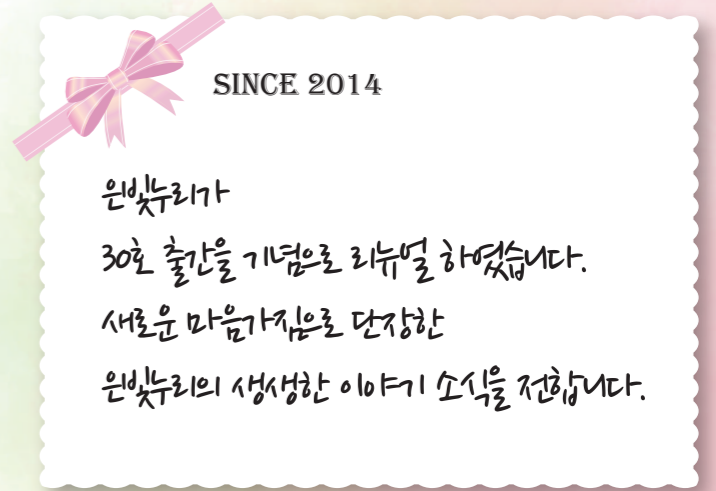 SINCE 2014
은빛누리가
30호 출간을 기념으로 리뉴얼 하였습니다.
새로운 마음가짐으로 단장한
은빛누리의 생생한 이야기 소식을 전합니다.